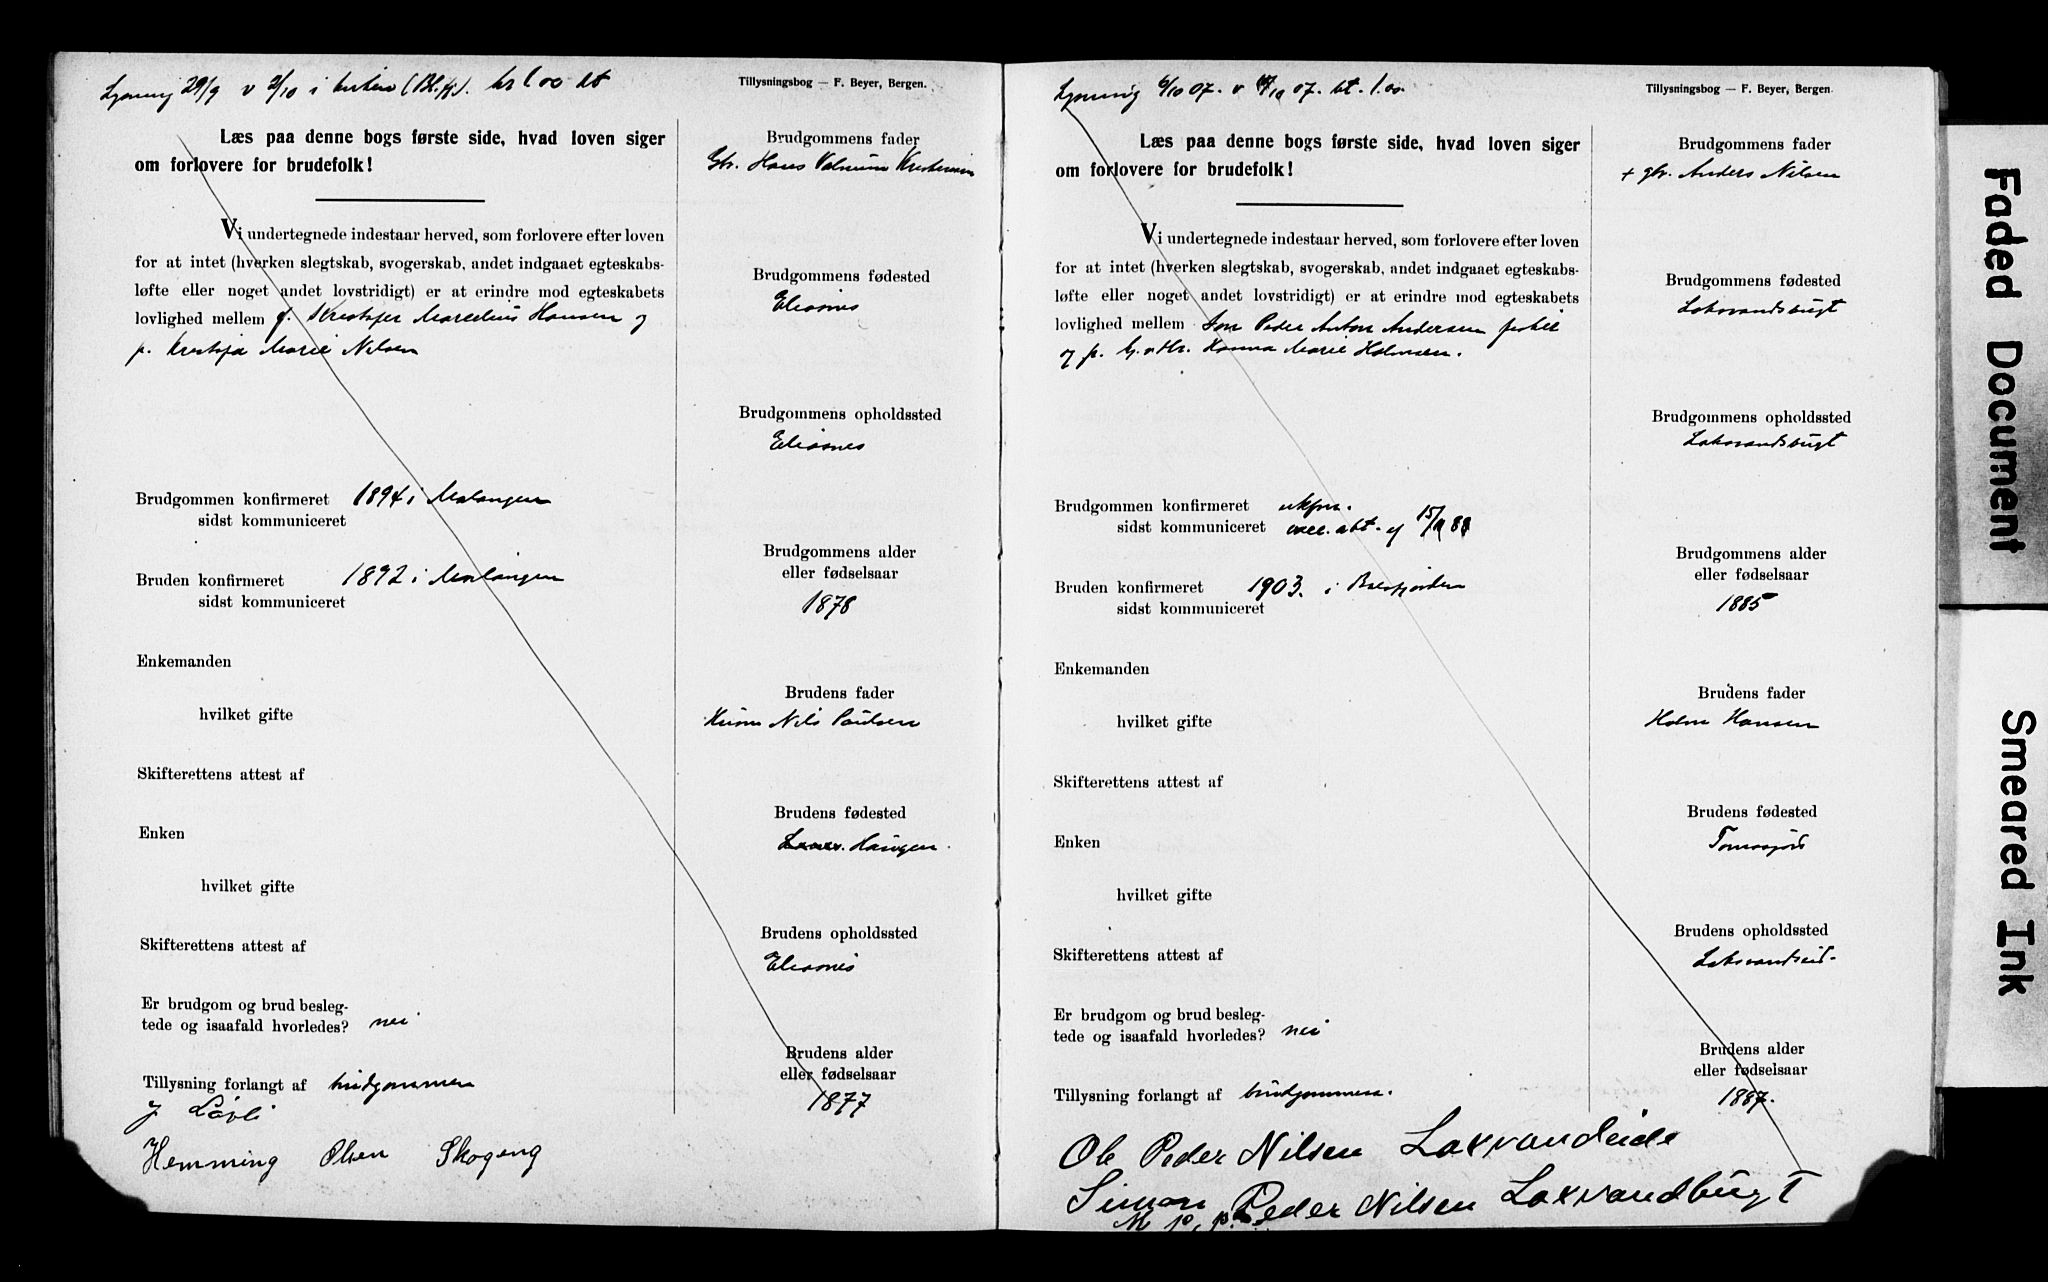 Lysning 29/9 v 9/10 i kirken (Bl.fj). kr 1 00 bt
Tillysningsbog — F. Beyer, Bergen.
Læs paa denne bogs første side, hvad loven siger
om forlovere for brudefolk!
Vi undertegnede indestaar herved, som forlovere efter loven
for at intet (hverken slegtskab, svogerskab, andet indgaaet egteskabs-
løfte eller noget andet lovstridigt) er at erindre mod egteskabets
lovlighed mellem Kristofer Marcelius Hansen og
p. Kristofa Marie Nilsen
Brudgommen konfirmeret 1894 i Malangen
sidst kommuniceret
Bruden konfirmeret 1892 i Malangen
sidst kommuniceret
Enkemanden
hvilket gifte
Skifterettens attest af
Enken
hvilket gifte
Skifterettens attest af
Er brudgom og brud besleg-
tede og isaafald hvorledes? nei
Tillysning forlangt af brudgommen
J Løvli
Hemming Olsen Skogeng
Brudgommens fader
Gbr. Hans Kristensen
Brudgommens fødested
Elvesnes
Brudgommens opholdssted
Elvesnes
Brudgommens alder
eller fødselsaar
1878
Brudens fader
Nils Paulsen
Brudens fødested
Haugen
Brudens opholdssted
Elvesnes
Brudens alder
eller fødselsaar
1877
Lysning 6/10 07. v 07. bt. 1.00
Tillysningsbog — F. Beyer, Bergen.
Læs paa denne bogs første side, hvad loven siger
om forlovere for brudefolk!
Vi undertegnede indestaar herved, som forlovere efter loven
for at intet (hverken slegtskab, svogerskab, andet indgaaet egteskabs-
løfte eller noget andet lovstridigt) er at erindre mod egteskabets
lovlighed mellem Peder Anton Andersen
og p. Hanna Marie Holmsen.
Brudgommen konfirmeret ukfm.
sidst kommuniceret att. af 88
Bruden konfirmeret 1903. i Balsfjorden
sidst kommuniceret
Enkemanden
hvilket gifte
Skifterettens attest af
Enken
hvilket gifte
Skifterettens attest af
Er brudgom og brud besleg-
tede og isaafald hvorledes? nei
Tillysning forlangt af brudgommen.
Ole Peder Nilsen Laxvandeide
Simon Peder Nilsen Laxvandbugt
M. p. p.
Brudgommens fader
+ gbr. Anders Nilsen
Brudgommens fødested
Laksvandsbugt
Brudgommens opholdssted
Laksvandsbugt
Brudgommens alder
eller fødselsaar
1885
Brudens fader
Holm Hansen
Brudens fødested
Tomasjord
Brudens opholdssted
Laksvandseid
Brudens alder
eller fødselsaar
1887.
Faded Document
Smeared Ink